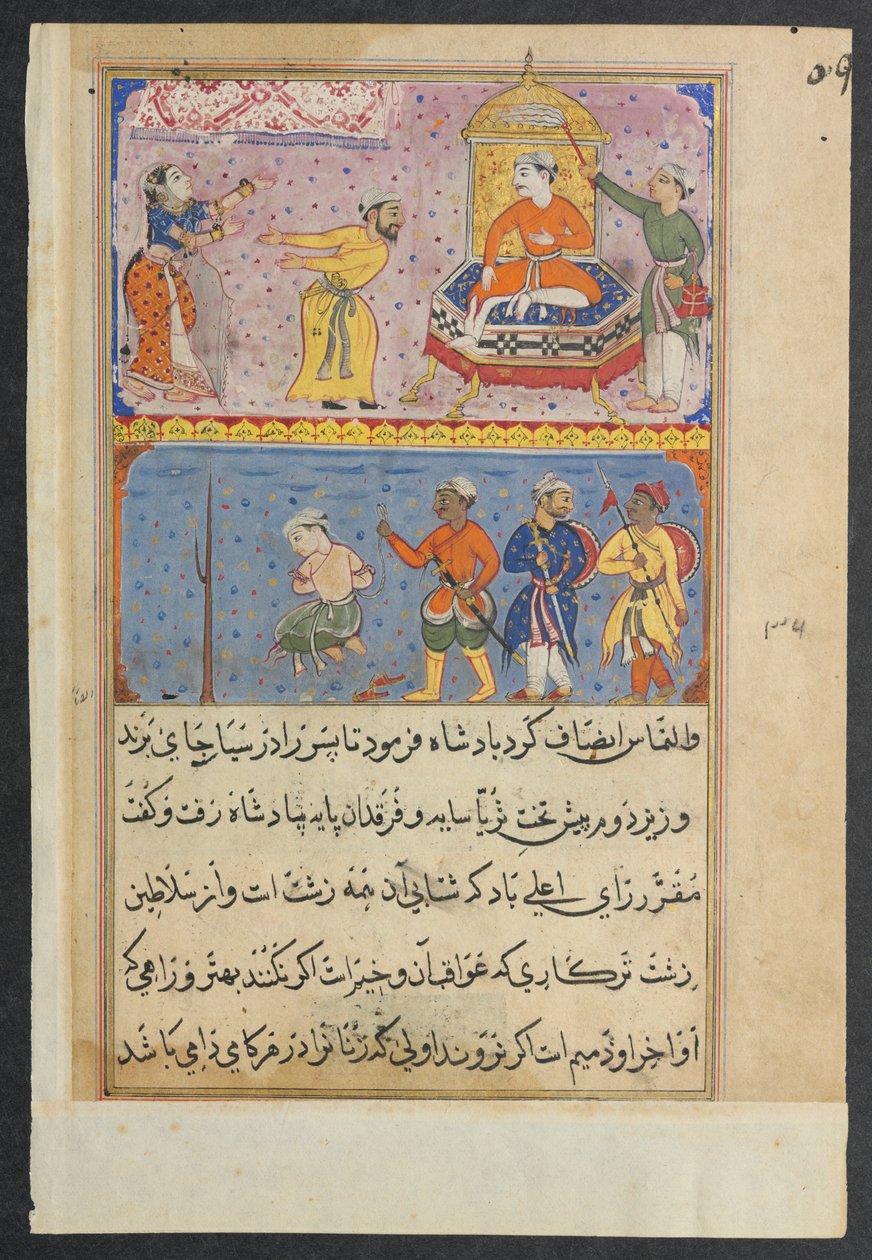 والتماس انصاف کرد بادشاه فرمود تا پسر را در سیاجای برند
وزیر دوم پیش تخت ثریا سایه و فرقدان پایه بادشاه رفت و گفت
مقرر رای اعلی باد که شتابی آن همه زشت است و از سلاطین
زشت تر کاری که عواقب آن وخیر است اکر نکنند بهتر و راهی که
اواخر او ذمیم است اکر نروند اولی که زنانرا در هر کامی دامی باشد